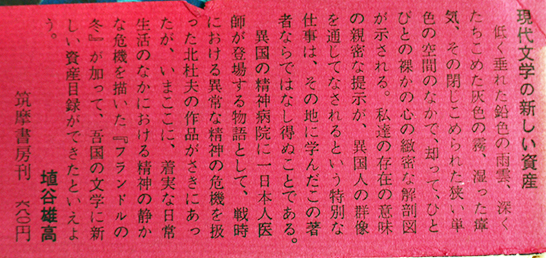 現代文学の新しい資産
低く垂れた鉛色の雨雲、深く
たちこめた灰色の霧、湿った瘴
気、その閉じこめられた狭い単
色の空間のなかで、却って、ひと
びとの裸かの心の緻密な解剖図
が示される。私達の存在の意味
の親密な提示が、異国人の群像
を通じてなされるという特別な
仕事は、その地に学んだこの著
者ならではなし得ぬことである。
異国の精神病院に一日本人医
師が登場する物語として、戦時
における異常な精神の危機を扱
った北杜夫の作品がさきにあっ
たが、いまここに、着実な日常
生活のなかにおける精神の静か
な危機を描いた『フランドルの
冬』が加って、吾国の文学に新
しい資産目録ができたといえよ
う。
埴谷雄高
筑摩書房刊 六八〇円